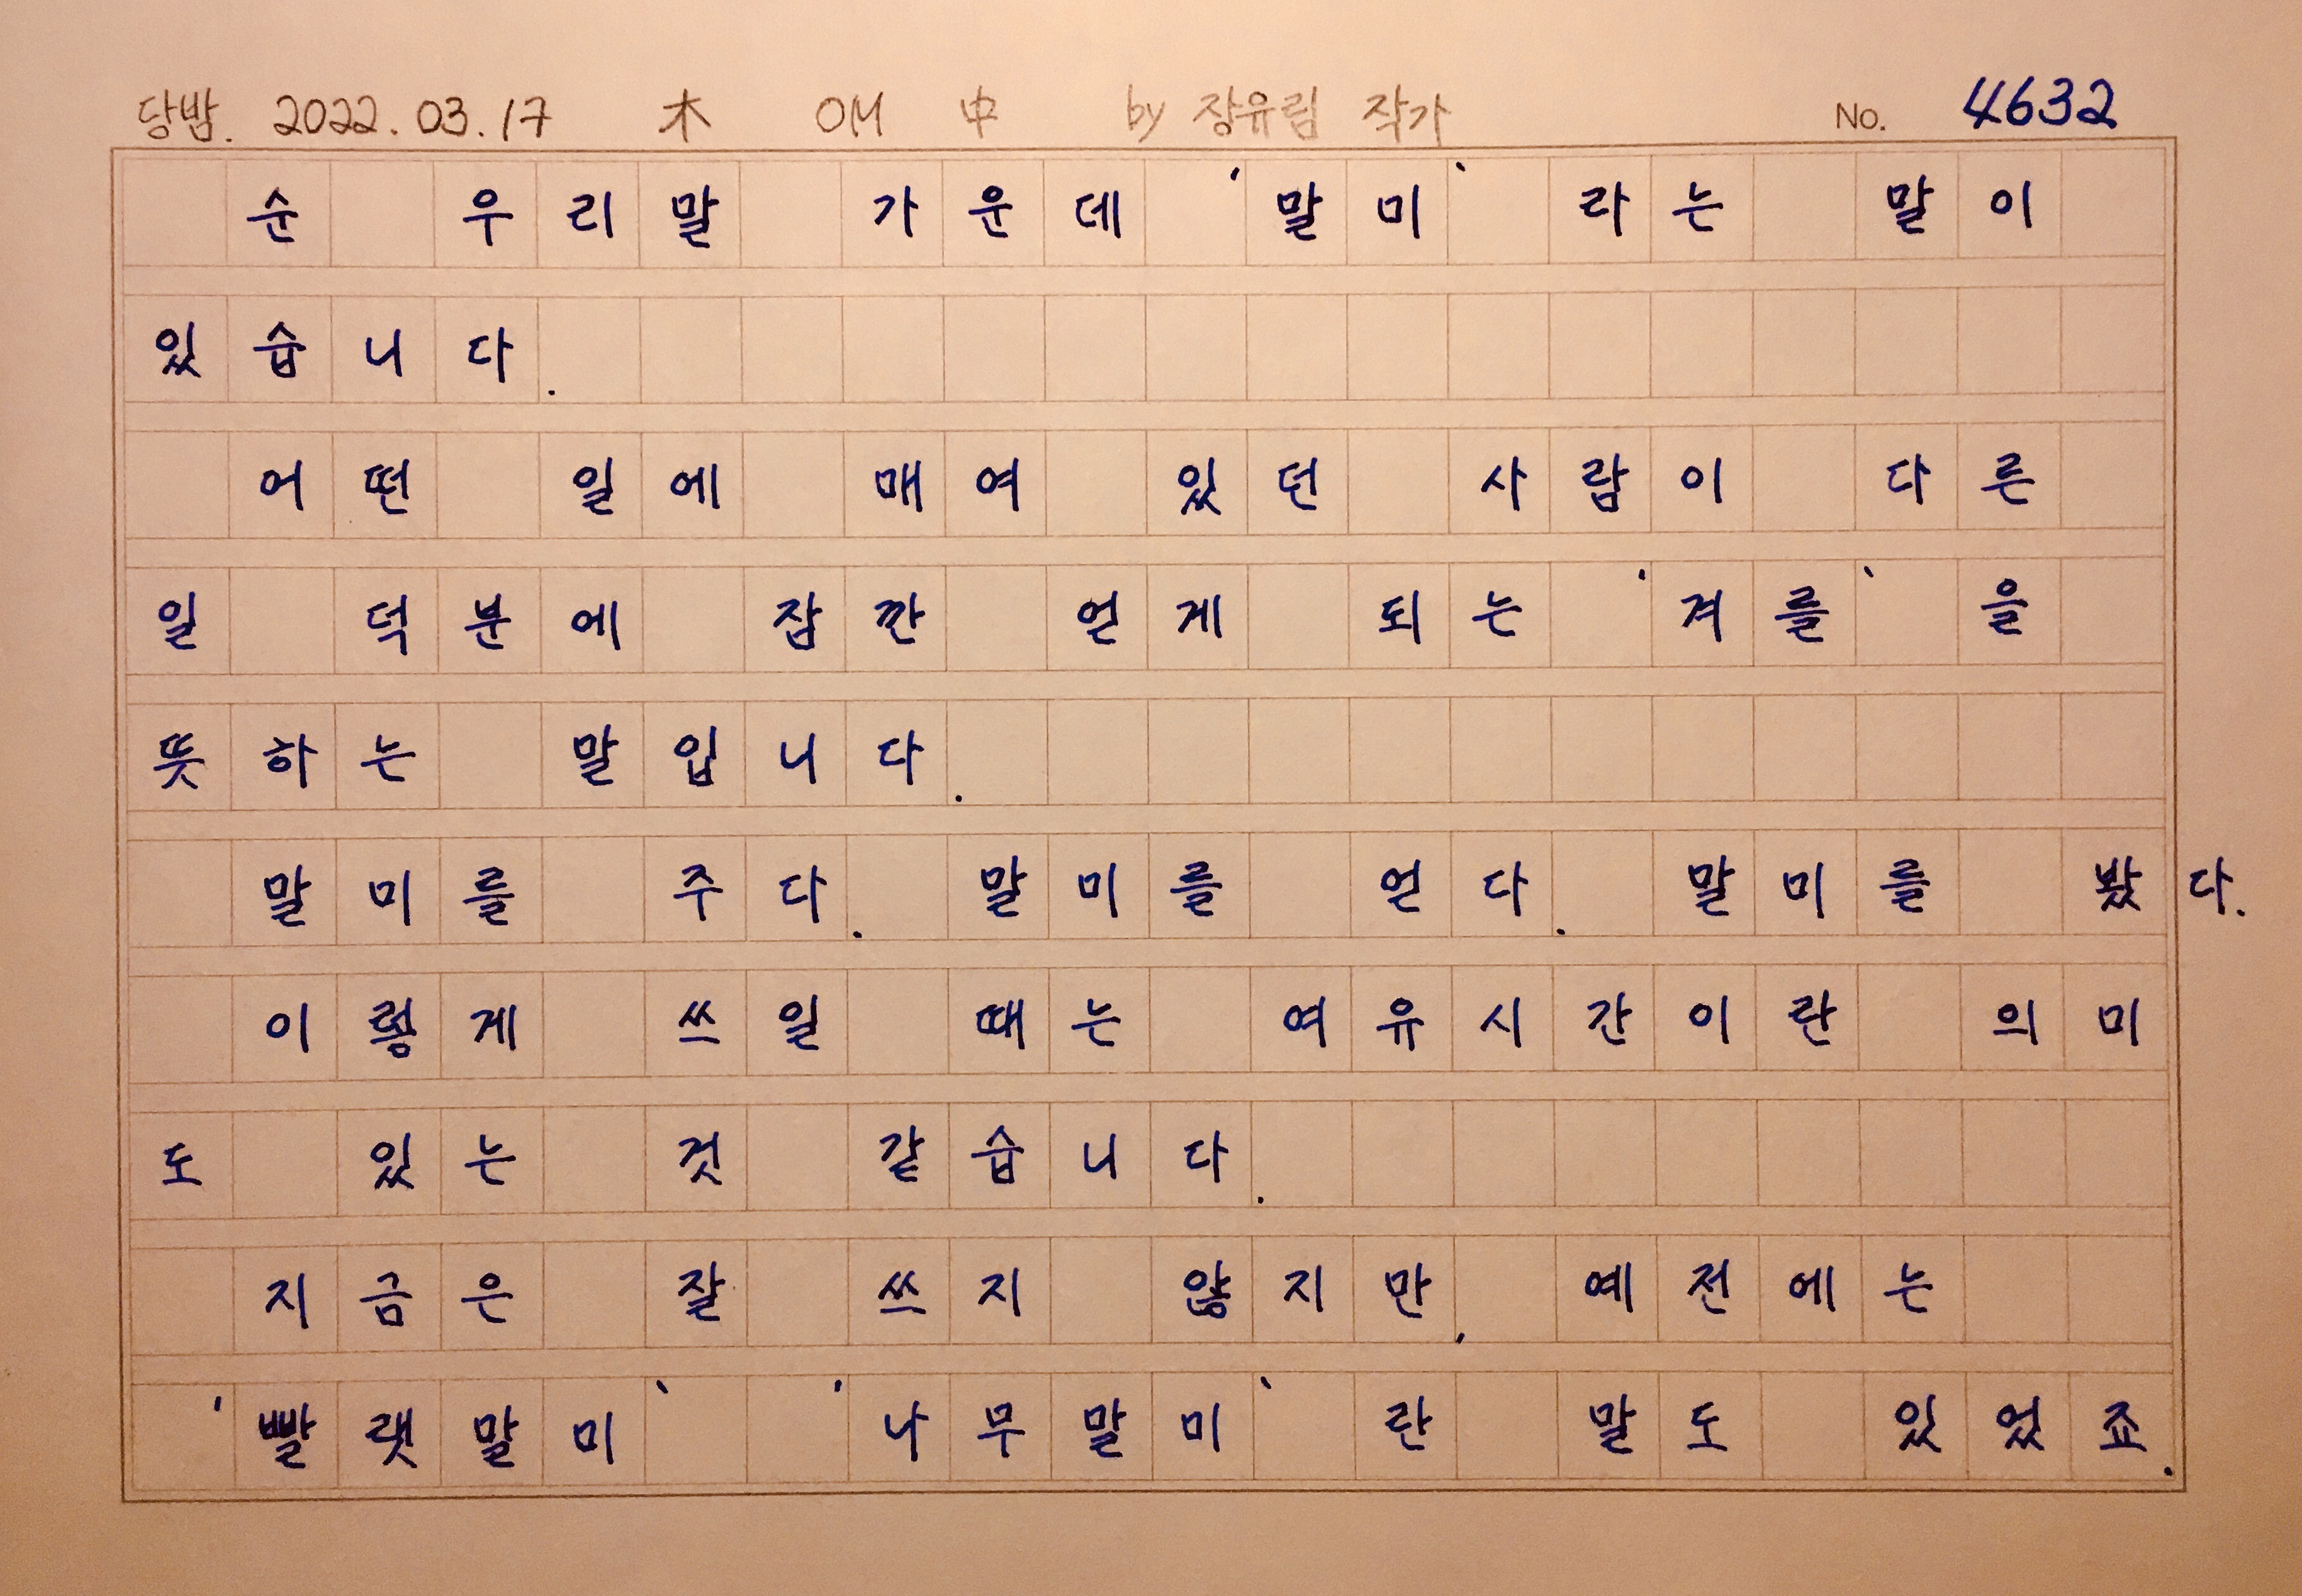 당밤. 2022.03.17 木 OM 中 by 장유림 작가 No. 4632
순 우리말 가운데 '말미' 라는 말이
있습니다.
어떤 일에 매여 있던 사람이 다른
일 덕분에 잠깐 얻게 되는 '겨를' 을
뜻하는 말입니다.
말미를 주다. 말미를 얻다. 말미를 봤다.
이렇게 쓰일 때는 여유시간이란 의미
도 있는 것 같습니다.
지금은 잘 쓰지 않지만, 예전에는
'빨랫말미' '나무말미' 란 말도 있었죠.